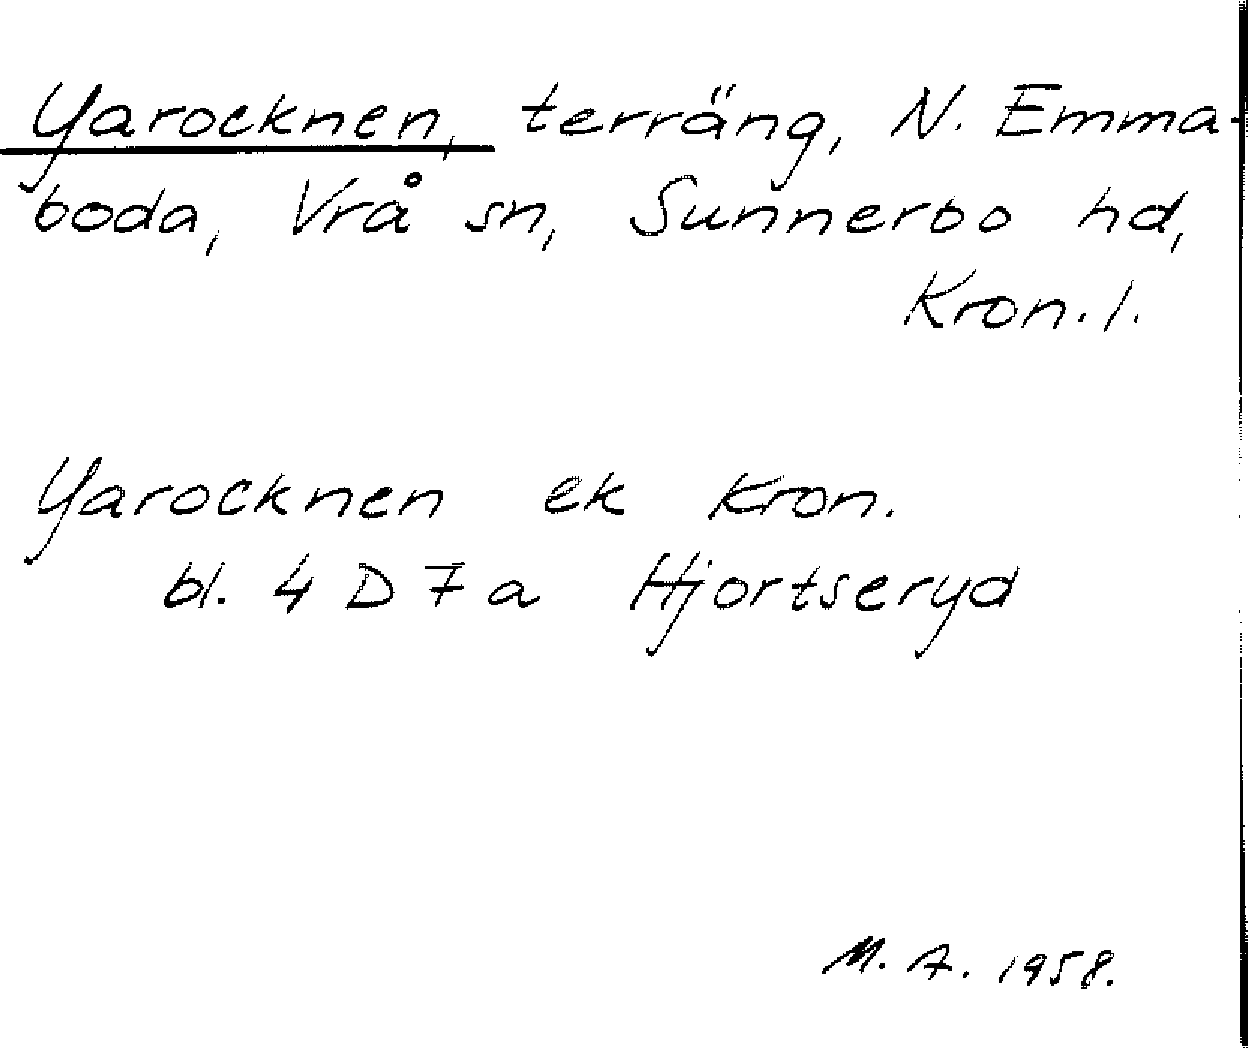 Yarocknen, terräng, N. Emma-
boda, Vrå sn, Sunnerbo hd,
Kron. l.
Yarocknen ek Kron.
bl. 4 D 7 a Hjortseryd
M. A. 1958.